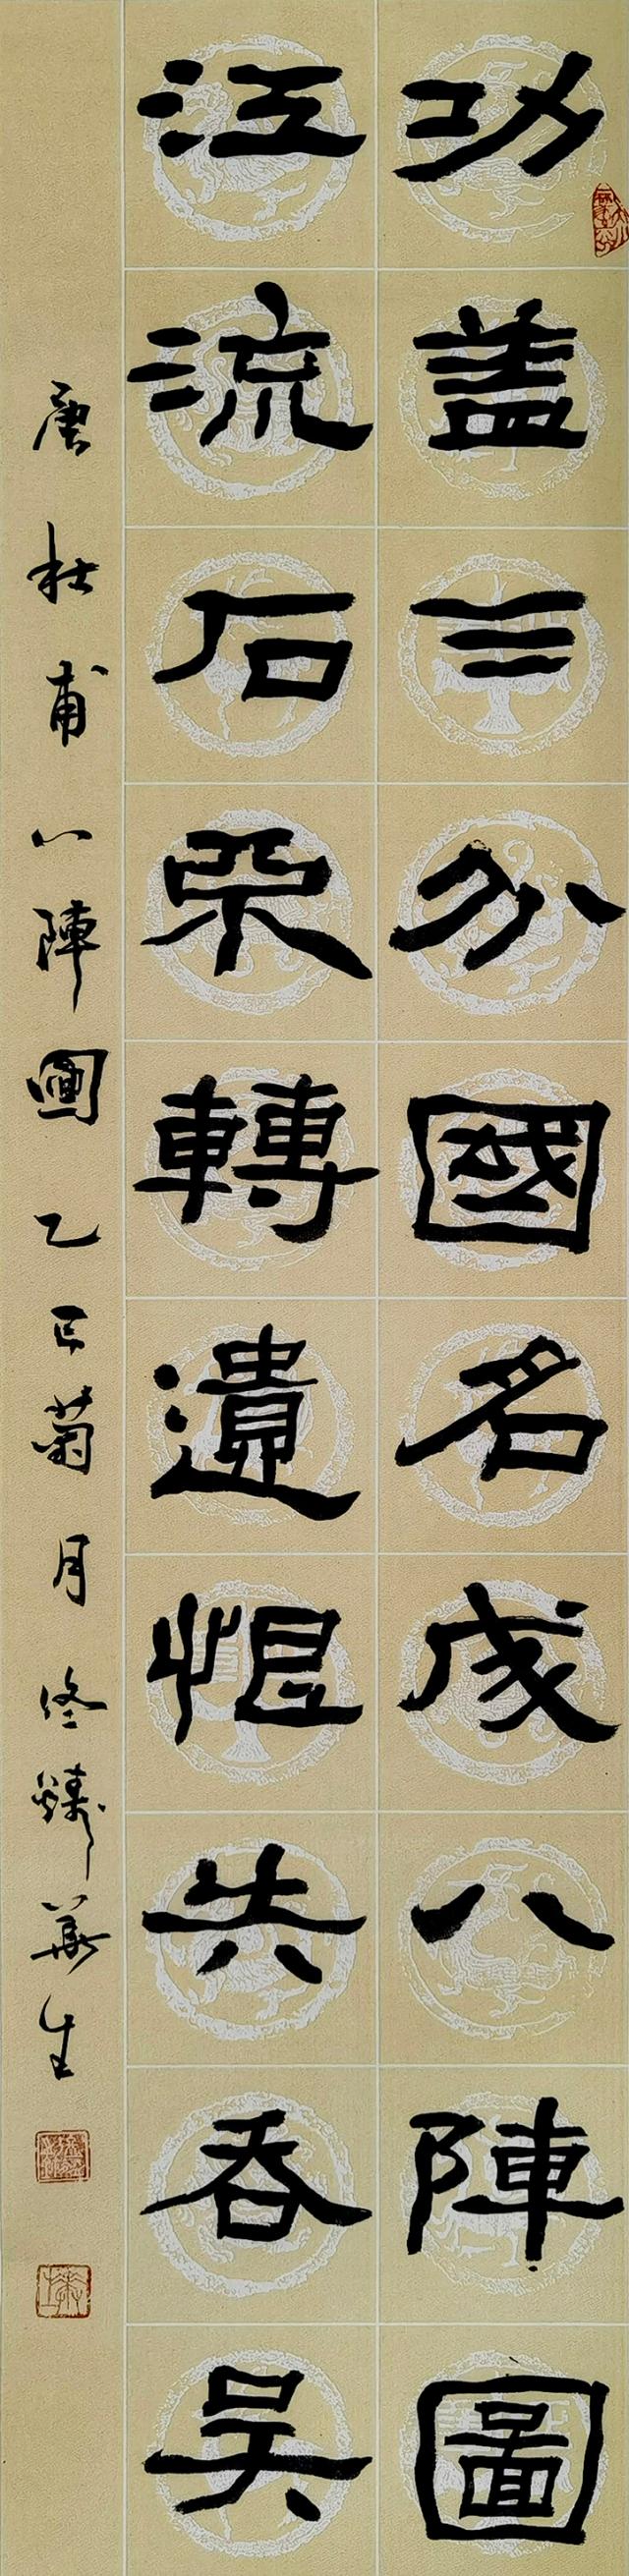 功盖三分國名成八陣圖
江流石不轉遺恨共吞吳
唐杜甫八陣圖乙巳菊月華生